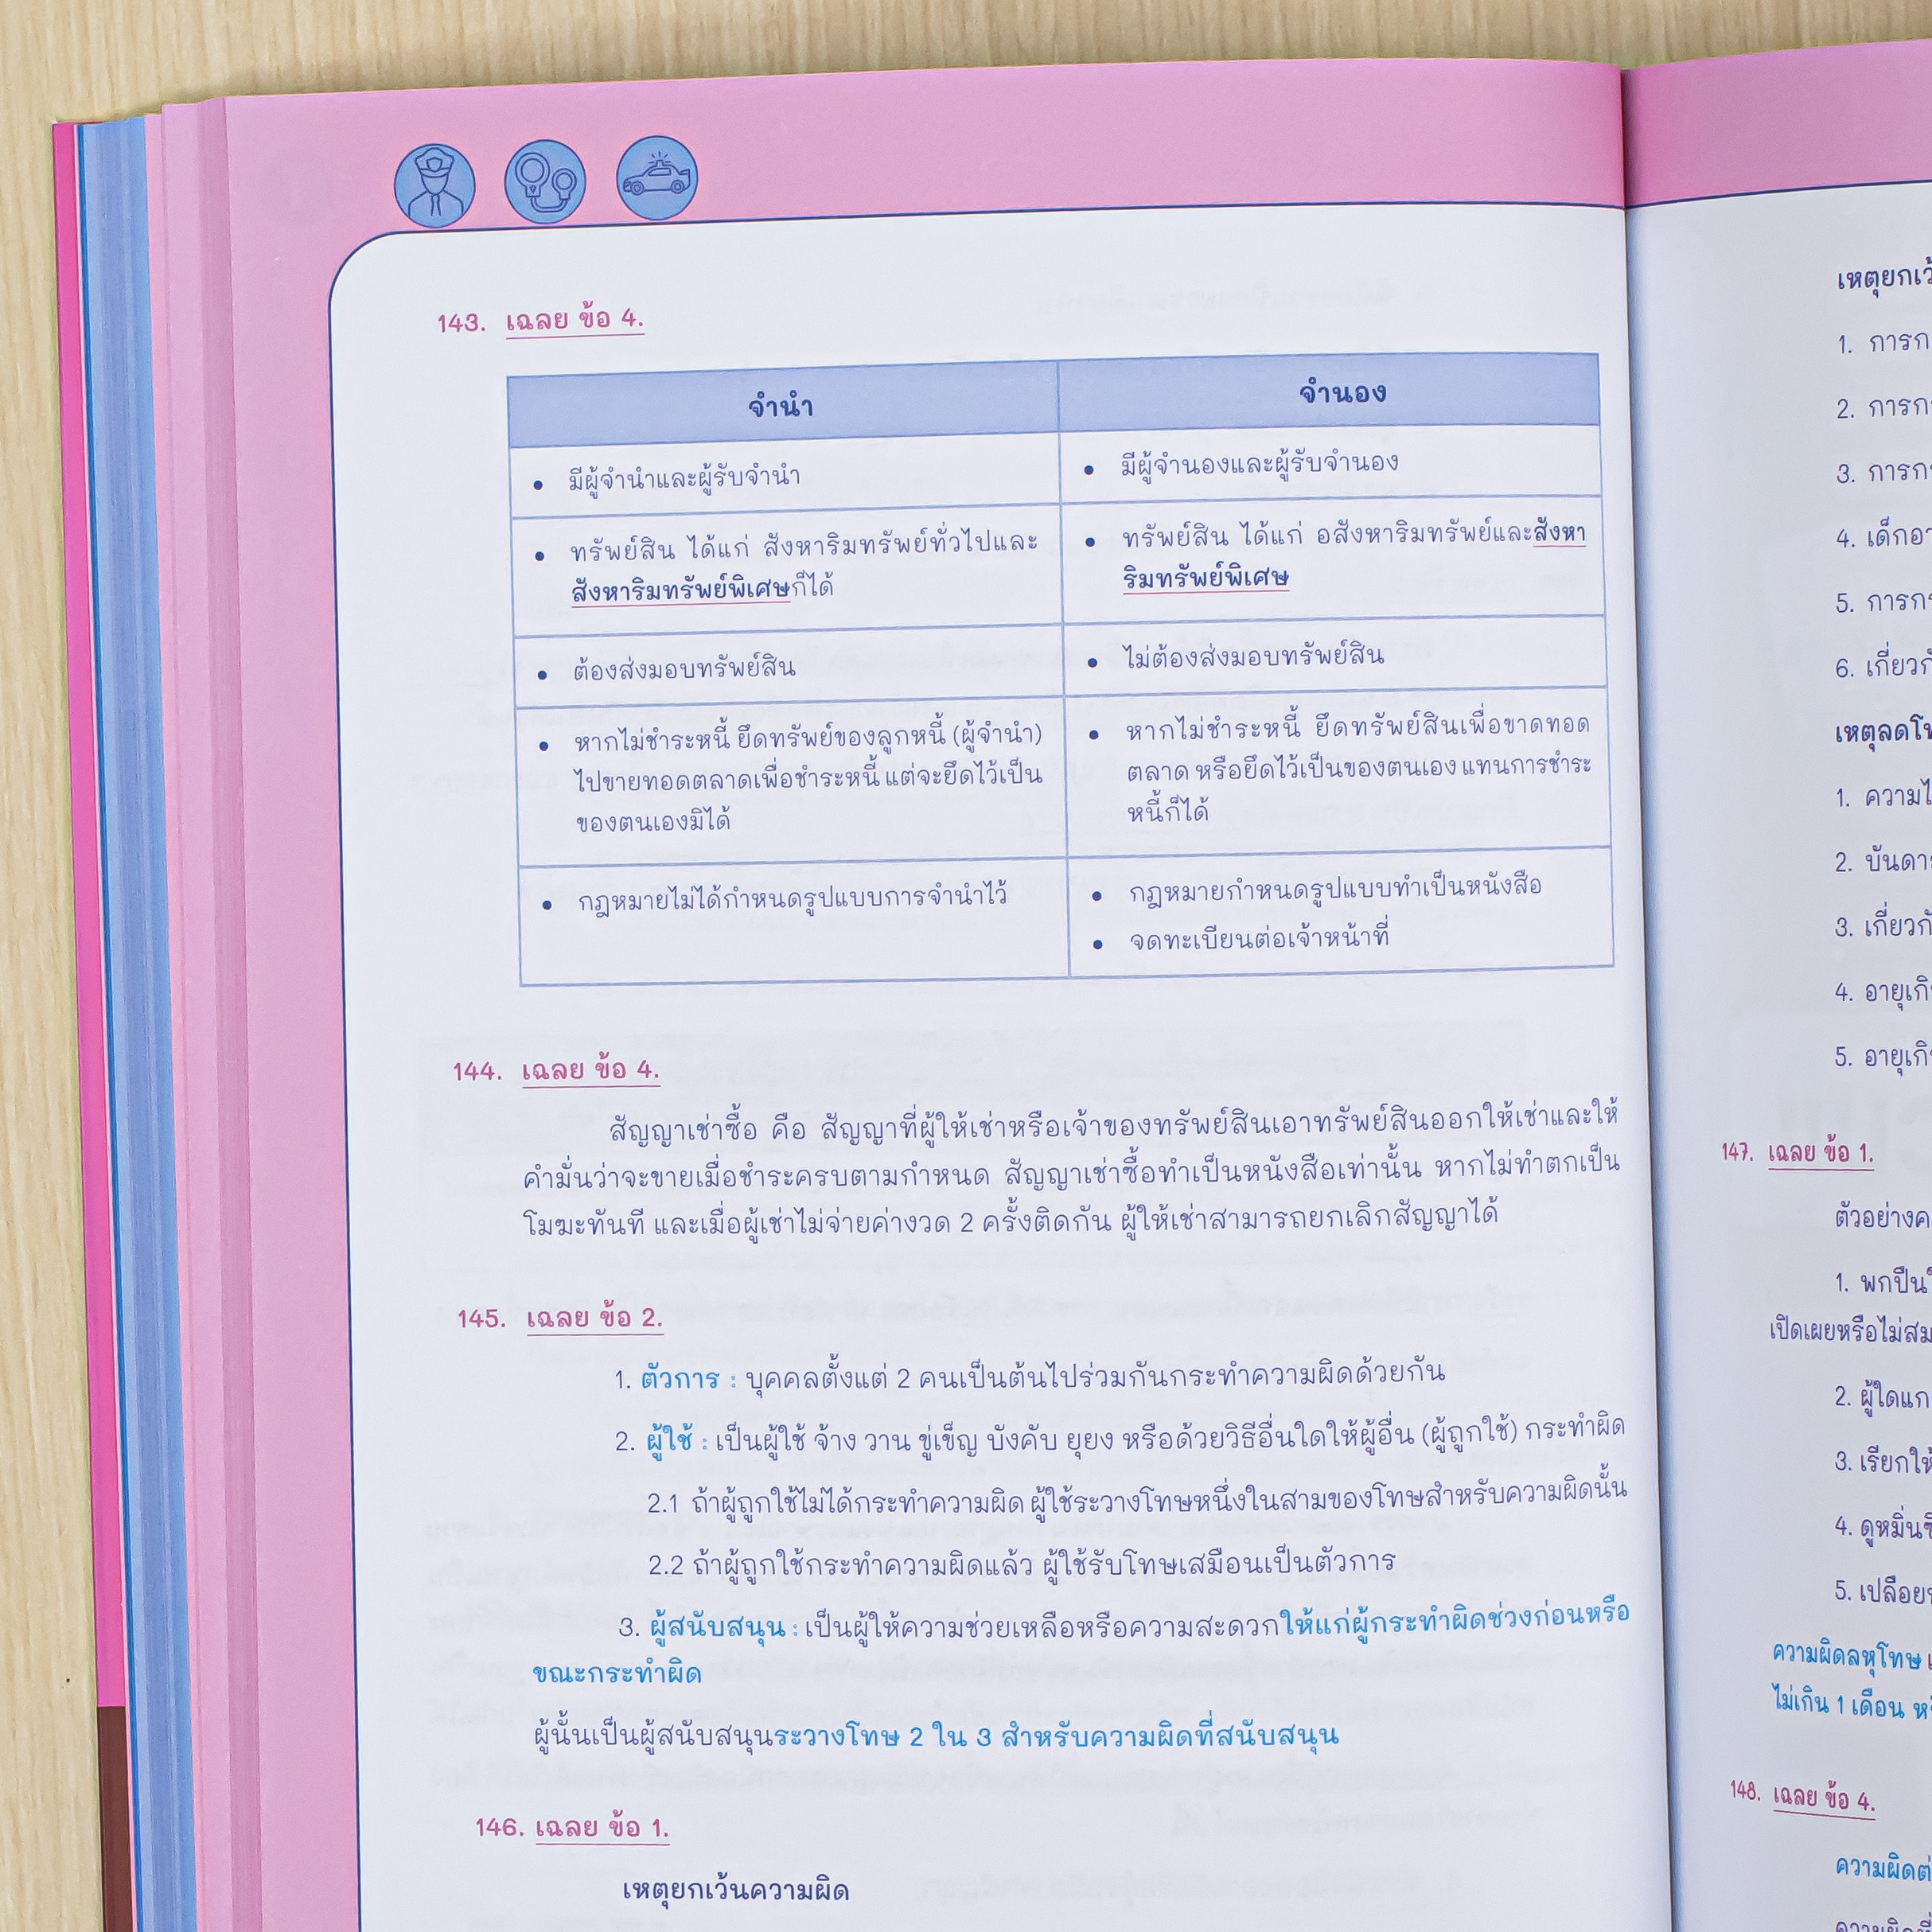 143. เฉลย ข้อ 4.
จำนำ
จำนอง
• มีผู้จำนำและผู้รับจำนำ
• มีผู้จำนองและผู้รับจำนอง
• ทรัพย์สิน ได้แก่ สังหาริมทรัพย์ทั่วไปและ
สังหาริมทรัพย์พิเศษก็ได้
• ทรัพย์สิน ได้แก่ อสังหาริมทรัพย์และสังหา
ริมทรัพย์พิเศษ
• ต้องส่งมอบทรัพย์สิน
• ไม่ต้องส่งมอบทรัพย์สิน
• หากไม่ชำระหนี้ ยึดทรัพย์ของลูกหนี้ (ผู้จำนำ)
ไปขายทอดตลาดเพื่อชำระหนี้ แต่จะยึดไว้เป็น
ของตนเองมิได้
• หากไม่ชำระหนี้ ยึดทรัพย์สินเพื่อขาดทอด
ตลาด หรือยึดไว้เป็นของตนเอง แทนการชำระ
หนี้ก็ได้
• กฎหมายไม่ได้กำหนดรูปแบบการจำนำไว้
• กฎหมายกำหนดรูปแบบทำเป็นหนังสือ
• จดทะเบียนต่อเจ้าหน้าที่
144. เฉลย ข้อ 4.
สัญญาเช่าซื้อ คือ สัญญาที่ผู้ให้เช่าหรือเจ้าของทรัพย์สินเอาทรัพย์สินออกให้เช่าและให้
คำมั่นว่าจะขายเมื่อชำระครบตามกำหนด สัญญาเช่าซื้อทำเป็นหนังสือเท่านั้น หากไม่ทำตกเป็น
โมฆะทันที และเมื่อผู้เช่าไม่จ่ายค่างวด 2 ครั้งติดกัน ผู้ให้เช่าสามารถยกเลิกสัญญาได้
145. เฉลย ข้อ 2.
1. ตัวการ : บุคคลตั้งแต่ 2 คนเป็นต้นไปร่วมกันกระทำความผิดด้วยกัน
2. ผู้ใช้ : เป็นผู้ใช้ จ้าง วาน ขู่เข็ญ บังคับ ยุยง หรือด้วยวิธีอื่นใดให้ผู้อื่น (ผู้ถูกใช้) กระทำผิด
2.1 ถ้าผู้ถูกใช้ไม่ได้กระทำความผิด ผู้ใช้ระวางโทษหนึ่งในสามของโทษสำหรับความผิดนั้น
2.2 ถ้าผู้ถูกใช้กระทำความผิดแล้ว ผู้ใช้รับโทษเสมือนเป็นตัวการ
3. ผู้สนับสนุน : เป็นผู้ให้ความช่วยเหลือหรือความสะดวกให้แก่ผู้กระทำผิดช่วงก่อนหรือ
ขณะกระทำผิด
ผู้นั้นเป็นผู้สนับสนุนระวางโทษ 2 ใน 3 สำหรับความผิดที่สนับสนุน
146. เฉลย ข้อ 1.
เหตุยกเว้นความผิด
เหตุยกเว้
1. การก
2. การก
3. การก
4. เด็กอา
5. การก
6. เกี่ยวกั
เหตุลดโท
1. ความไ
2. บันดา
3. เกี่ยวกั
4. อายุเกิ
5. อายุเกิ
147. เฉลย ข้อ 1.
ตัวอย่างค
1. พกปืนใ
เปิดเผยหรือไม่สม
2. ผู้ใดแก
3. เรียกให้
4. ดูหมิ่นซึ
5. เปลือย
ความผิดลหุโทษ
ไม่เกิน 1 เดือน ห
148. เฉลย ข้อ 4.
ความผิดต่